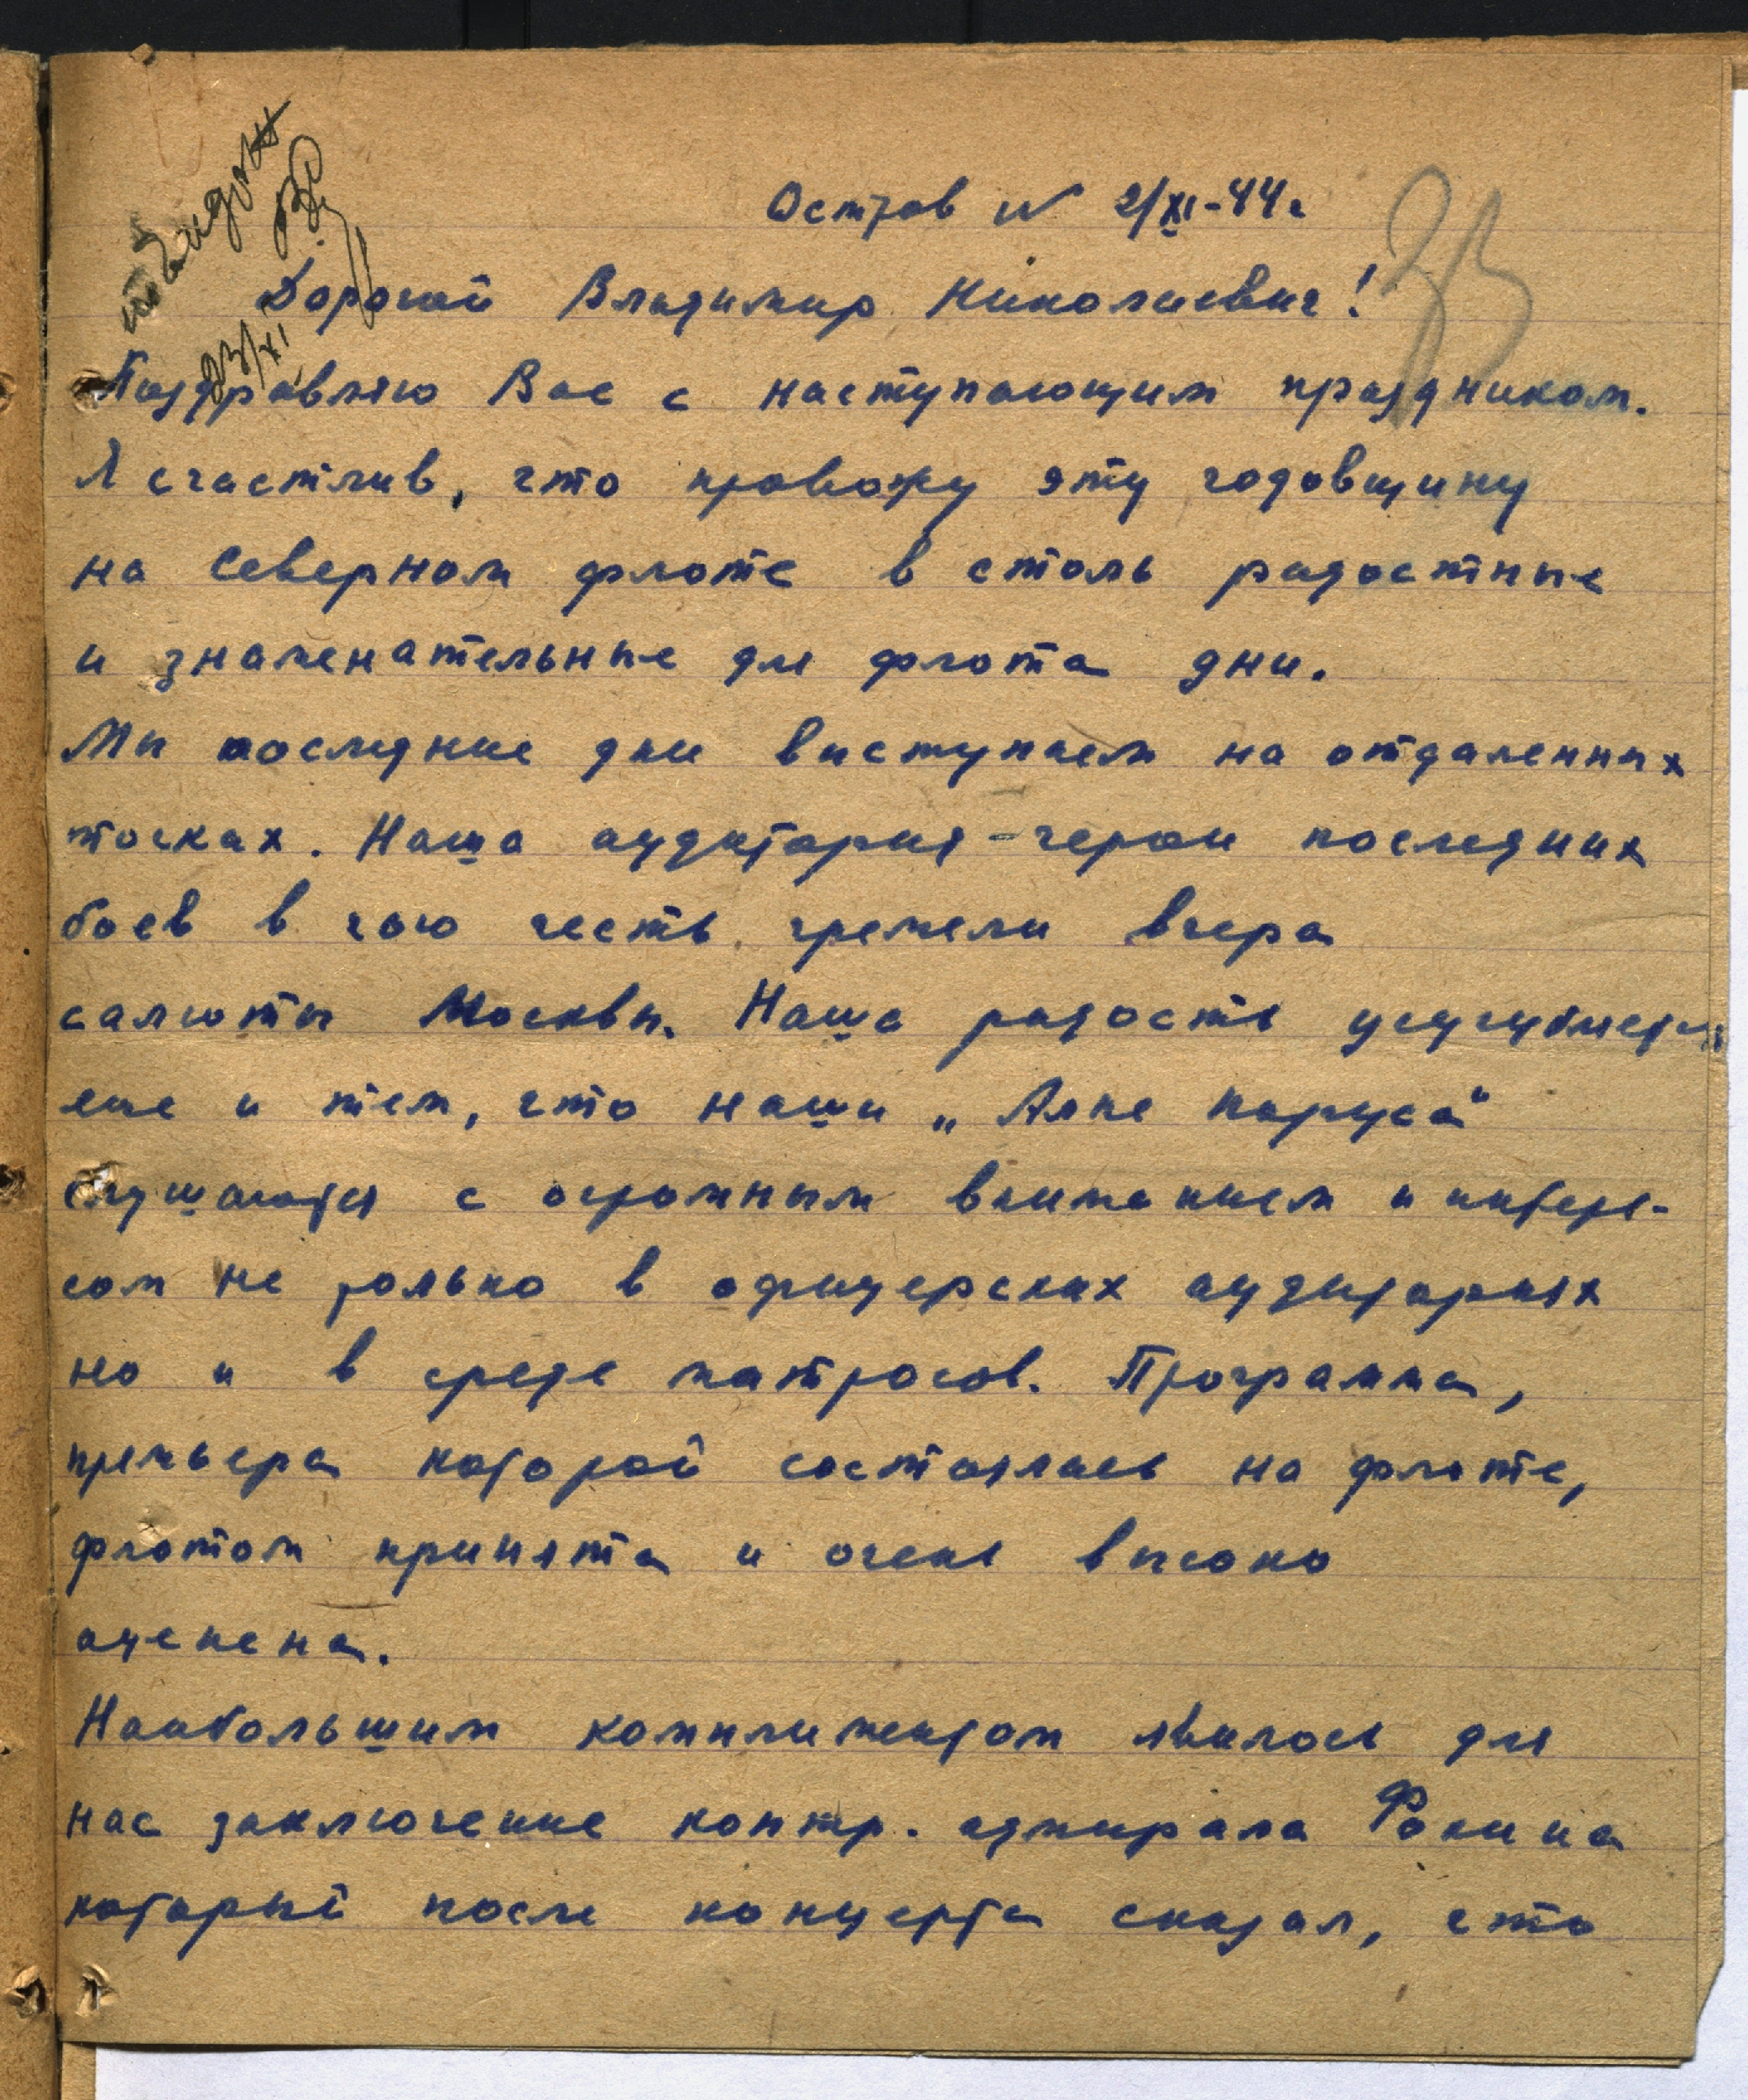 Остров N 2/XI-44г
23/XI
33
Дорогой Владимир Николаевич!
Поздравляю Вас с наступающим праздником.
Я счастлив, что провожу эту годовщину
на Северном флоте в столь радостные
и знаменательные для флота дни.
Мы последние дни выступаем на отдаленных
точках. Наша аудитория - герои последних
боев в чью честь гремели вчера
салюты Москвы. Наша радость усугубляется
еще и тем, что наши „Алые паруса“
слушаются с огромным вниманием и интере-
сом не только в офицерских аудиториях
но и в среде матросов. Программа,
премьера которой состоялась на флоте,
флотом принята и очень высоко
оценена.
Наибольшим комплиментом явилось для
нас заключение контр. адмирала Фокина
который после концерта сказал, что